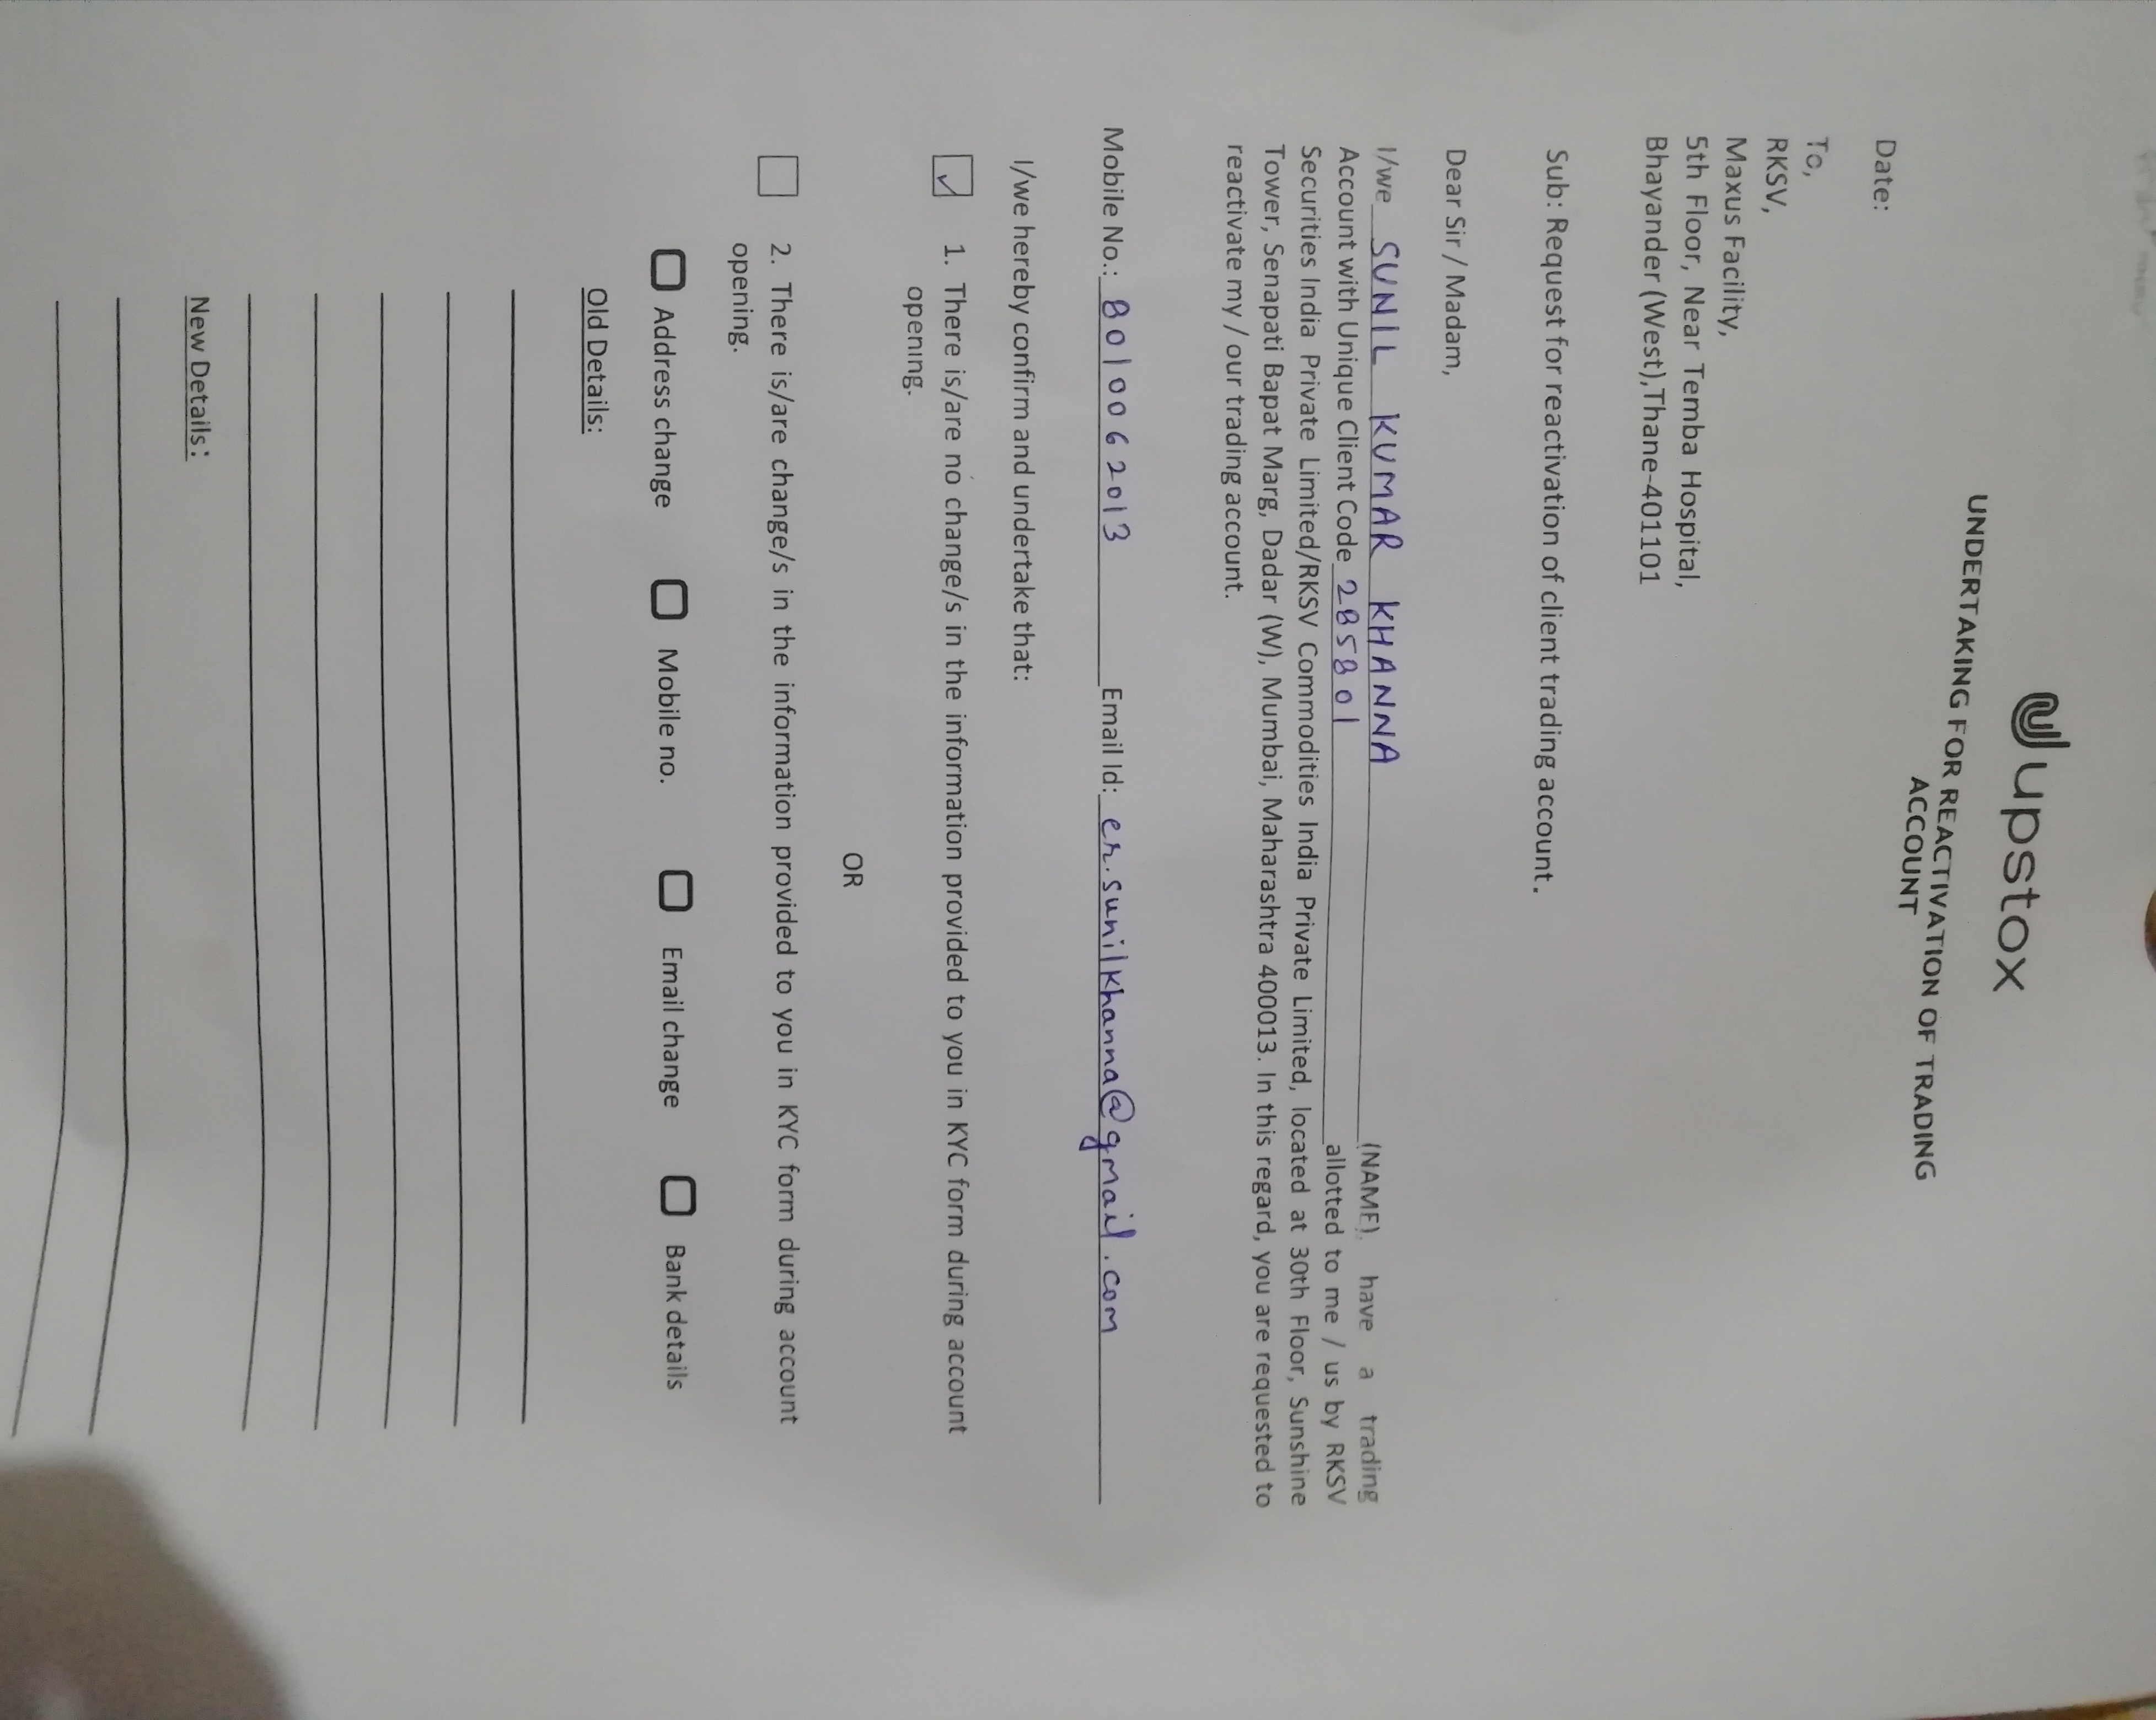 upstox
UNDERTAKING FOR REACTIVATION OF TRADING
ACCOUNT
Date:
To,
RKSV,
Maxus Facility,
5th Floor, Near Temba Hospital,
Bhayander (West),Thane-401101
Sub: Request for reactivation of client trading account.
Dear Sir / Madam,
I/we SUNIL KUMAR KHANNA (NAME) have a trading
Account with Unique Client Code 285801 allotted to me / us by RKSV
Securities India Private Limited/RKSV Commodities India Private Limited, located at 30th Floor, Sunshine
Tower, Senapati Bapat Marg, Dadar (W), Mumbai, Maharashtra 400013. In this regard, you are requested to
reactivate my / our trading account.
Mobile No.: 8010062013 Email Id: er.sunilkhanna@gmail.com
I/we hereby confirm and undertake that:
1. There is/are no change/s in the information provided to you in KYC form during account
opening.
OR
2. There is/are change/s in the information provided to you in KYC form during account
opening.
Address change Mobile no. Email change Bank details
Old Details:
New Details: